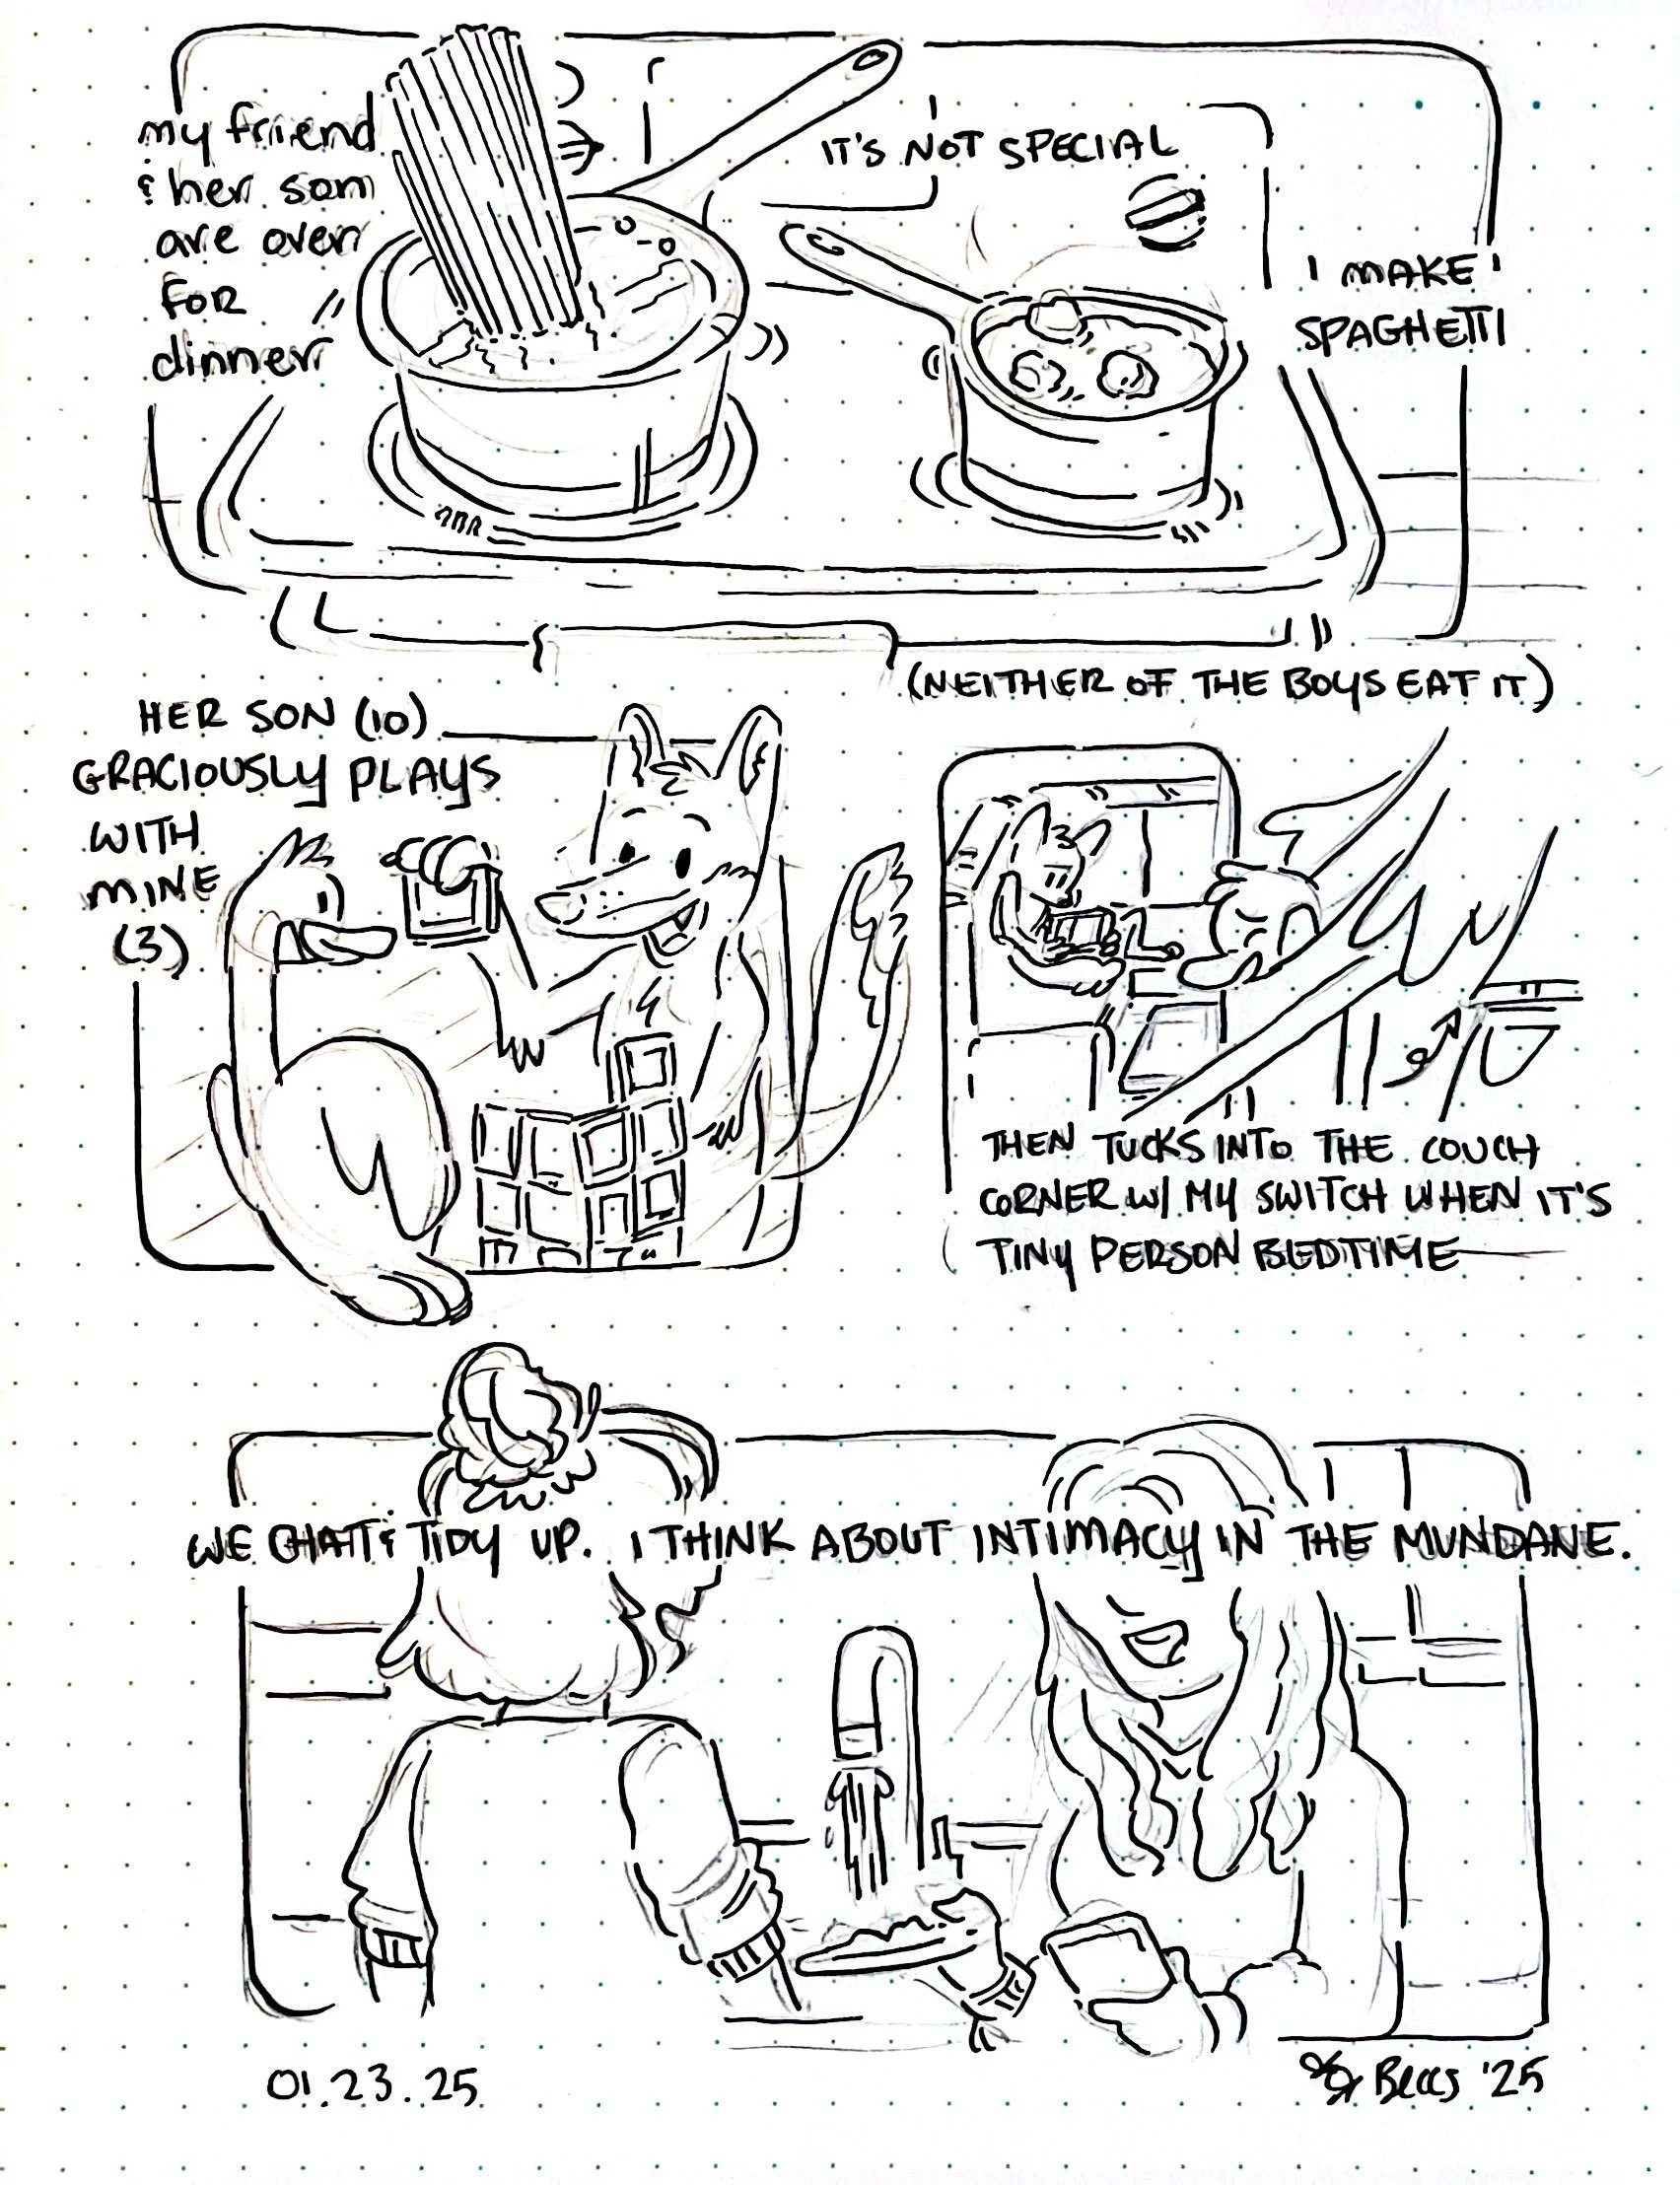 my friend
& her son
are over
FOR
dinner
IT'S NOT SPECIAL
I MAKE
SPAGHETTI
(NEITHER OF THE BOYS EAT IT)
HER SON (10)
GRACIOUSLY PLAYS
WITH
MINE
(3)
THEN TUCKS INTO THE COUCH
CORNER W/ MY SWITCH WHEN IT'S
TINY PERSON BEDTIME
WE CHAT & TIDY UP. I THINK ABOUT INTIMACY IN THE MUNDANE.
01.23.25
Beccs '25